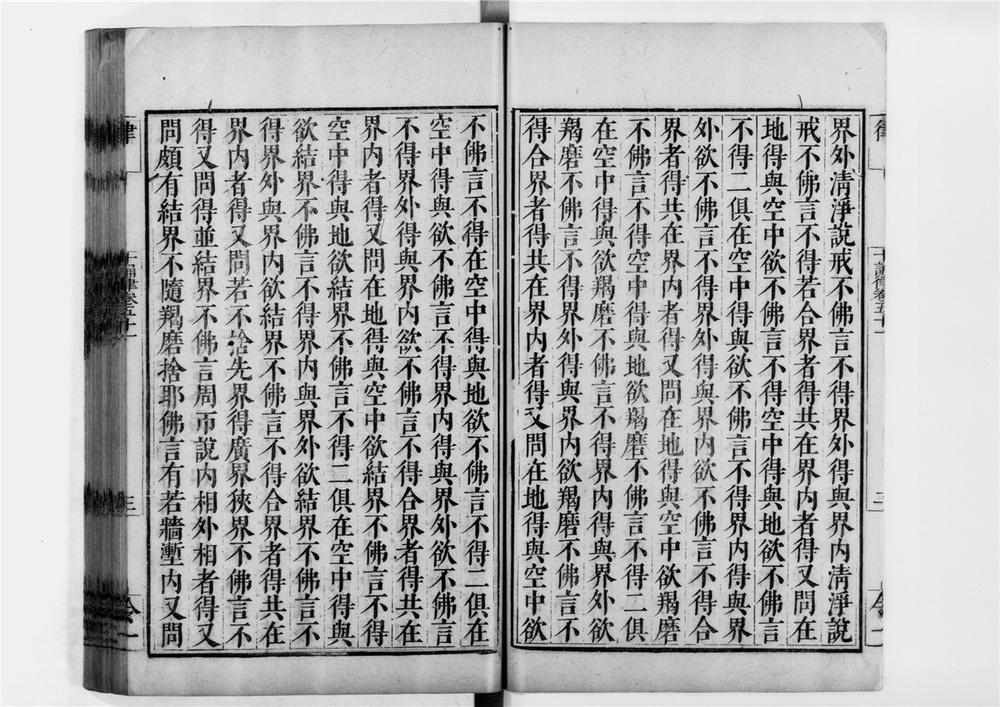 界外清淨說戒不佛言不得界外得與界内清淨說
戒不佛言不得若合界者得共在界内者得又問在
地得與空中欲不佛言不得空中得與地欲不佛言
不得二俱在空中得與欲不佛言不得界内得與界
外欲不佛言不得界外得與界内欲不佛言不得合
界者得共在界内者得又問在地得與空中欲羯磨
不佛言不得空中得與地欲羯磨不佛言不得二俱
在空中得與欲羯磨不佛言不得界内得與界外欲
羯磨不佛言不得界外得與界内欲羯磨不佛言不
得合界者得共在界内者得又問在地得與空中欲
不佛言不得在空中得與地欲不佛言不得二俱在
空中得與欲不佛言不得界内得與界外欲不佛言
不得界外得與界内欲不佛言不得合界者得共在
界内者得又問在地得與空中欲結界不佛言不得
空中得與地欲結界不佛言不得二俱在空中得與
欲結界不佛言不得界内與界外欲結界不佛言不
得界外與界内欲結界不佛言不得合界者得共在
界内者得又問若不捨先界得廣界狹界不佛言不
得又問得並結界不佛言周帀說内相外相者得又
問頗有結界不隨羯磨捨耶佛言有若牆壍内又問
律
十誦律卷五十一
三